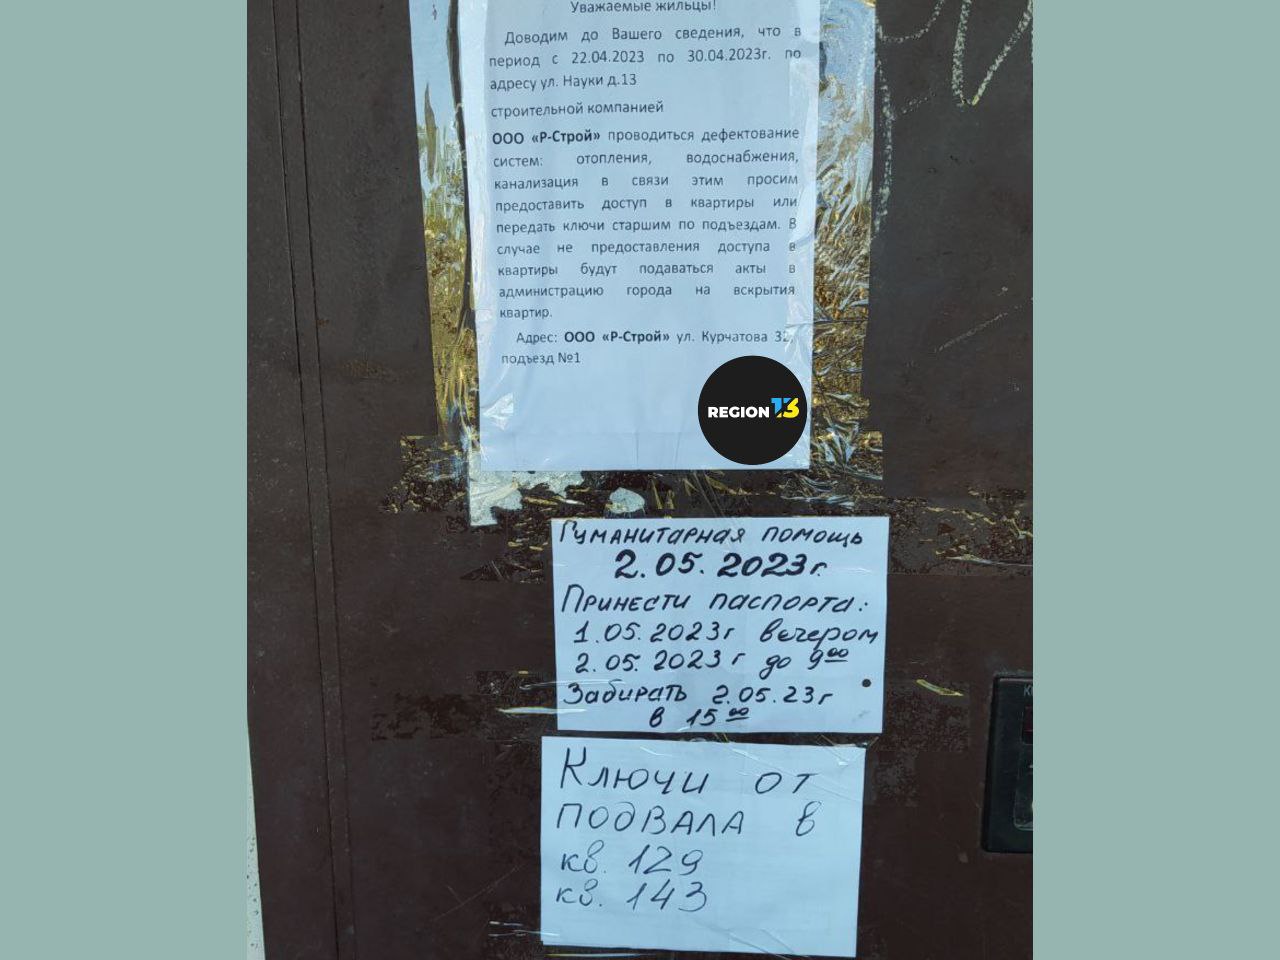 Уважаемые жильцы!
Доводим до Вашего сведения, что в
период с 22.04.2023 по 30.04.2023г. по
адресу ул. Науки д.13
строительной компанией
ООО «Р-Строй» проводиться дефектование
систем: отопления, водоснабжения,
канализация в связи этим просим
предоставить доступ в квартиры или
передать ключи старшим по подъездам. В
случае не предоставления доступа в
квартиры будут подаваться акты в
администрацию города на вскрытия
квартир.
Адрес: ООО «Р-Строй» ул. Курчатова
подъезд №1
REGION 13
Гуманитарная помощь
2.05.2023г.
Принести паспорта:
1.05.2023г вечером
2.05.2023г до 9 00
Забирать 2.05.23г
в 15 00
Ключи от
подвала в
кв. 129
кв. 143